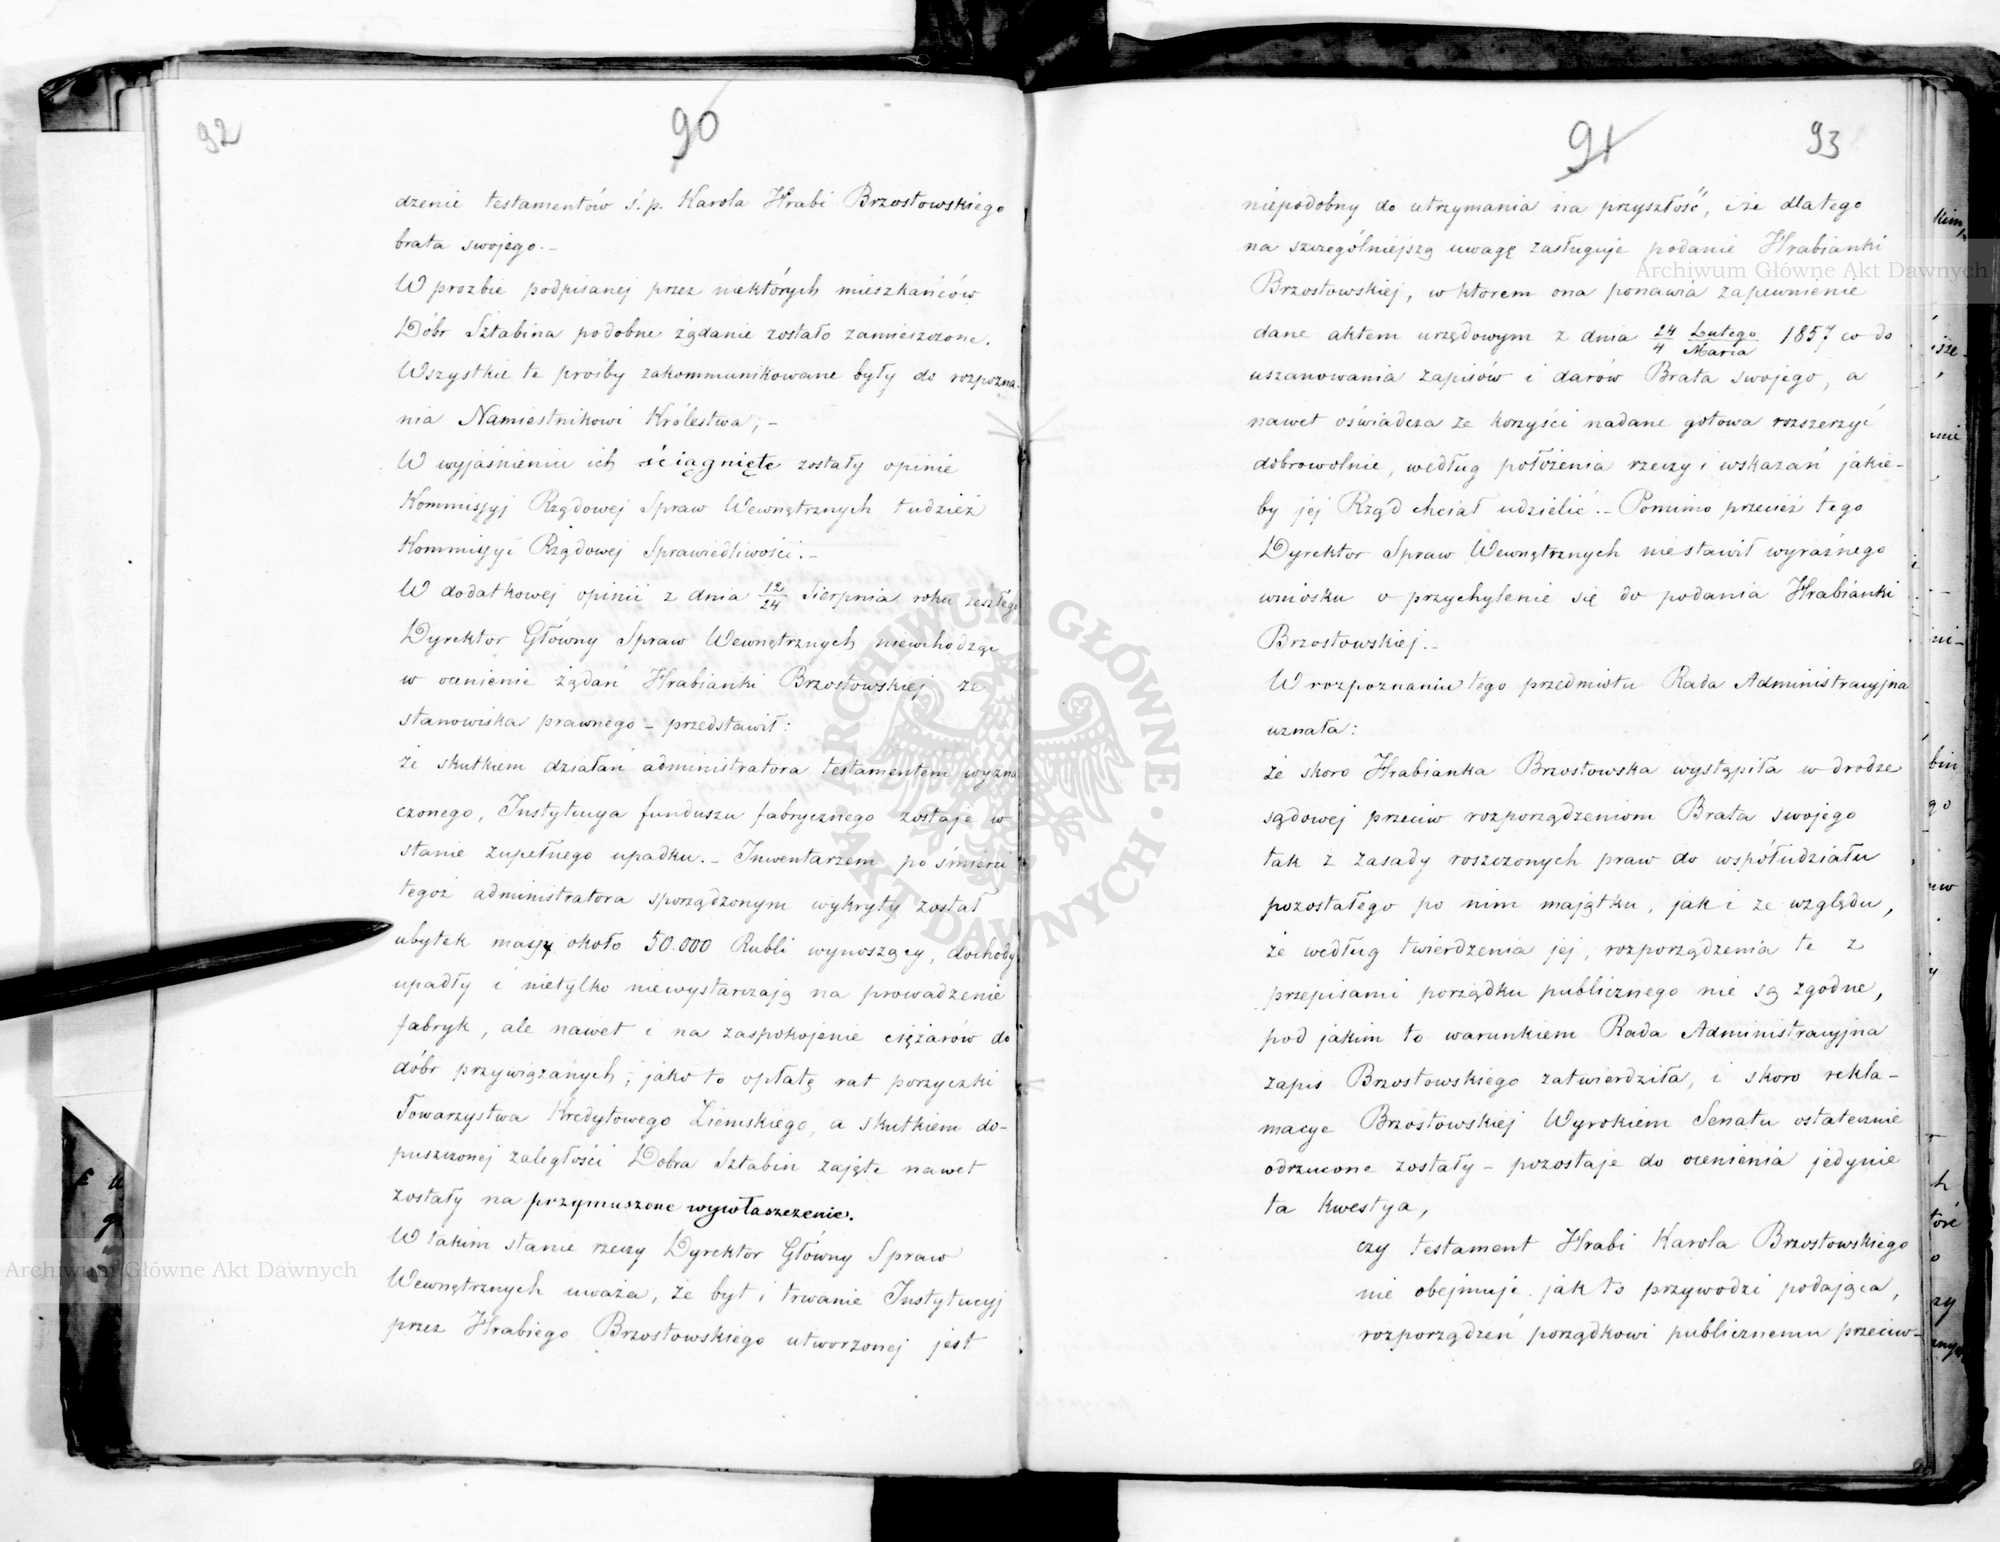 92
90
dzenie testamentów ś.p. Karola Hrabi Brzostowskiego
brata swojego. –
W prozbie podpisanej przez niektórych mieszkańców
Dóbr Sztabina podobne żądanie zostało zamieszczone.
Wszystkie te prośby zakommunikowane były do rozpozna-
nia Namiestnikowi Królestwa; –
W wyjaśnieniu ich ściągnięte zostały opinie
Kommissyj Rządowej Spraw Wewnętrznych tudzież
Kommissyi Rządowej Sprawiedliwości. –
W dodatkowej opinii z dnia 12/24 Sierpnia roku zeszłego
Dyrektor Główny Spraw Wewnętrznych niewchodząc
w ocenienie żądań Hrabianki Brzostowskiej ze
stanowiska prawnego – przedstawił:
że skutkiem działań administratora testamentem wyzna
czonego, Instytucya funduszu fabrycznego zostaje w
stanie zupełnego upadku. – Inwentarzem po śmierci
tegoż administratora sporządzonym wykryty został
ubytek massy około 50.000 Rubli wynoszący, dochody
upadły i nietylko niewystarczają na prowadzenie
fabryk, ale nawet i na zaspokojenie ciężarów do
dóbr przywiązanych; jako to opłatę rat pożyczki
Towarzystwa Kredytowego Ziemskiego, a skutkiem do-
puszczonej zaległości Dobra Sztabin zajęte nawet
zostały na przymuszone wywłaszczenie.
W takim stanie rzeczy Dyrektor Główny Spraw
Wewnętrznych uważa, że byt i trwanie Instytucyj
przez Hrabiego Brzostowskiego utworzonej jest
91
93
niepodobny do utrzymania na przyszłość, i że dlatego
na szczególniejszą uwagę zasługuje podanie Hrabianki
Brzostowskiej, w ktorem ona ponawia zapewnienie
dane aktem urzędowym z dnia 24/4 Lutego/Marca 1857 co do
uszanowania zapisów i darów Brata swojego, a
nawet oświadcza że korzyści nadane gotowa rozszerzyć
dobrowolnie, według położenia rzeczy i wskazań jakie-
by jej Rząd chciał udzielić. – Pomimo przecież tego
Dyrektor Spraw Wewnętrznych niestawił wyraźnego
wniosku o przychylenie się do podania Hrabianki
Brzostowskiej. –
W rozpoznaniu tego przedmiotu Rada Administracyjna
uznała:
że skoro Hrabianka Brzostowska wystąpiła w drodze
sądowej przeciw rozporządzeniom Brata swojego
tak z zasady roszczonych praw do współudziału
pozostałego po nim majątku, jak i ze względu,
że według twierdzenia jej, rozporządzenia te z
przepisami porządku publicznego nie są zgodne,
pod jakim to warunkiem Rada Administracyjna
zapis Brzostowskiego zatwierdziła, i skoro rekla-
macye Brzostowskiej Wyrokiem Senatu ostatecznie
odrzucone zostały – pozostaje do ocenienia jedynie
ta kwestya,
czy testament Hrabi Karola Brzostowskiego
nie obejmuje jak to przywodzi podająca,
rozporządzeń porządkowi publicznemu przeciw-
Archiwum Główne Akt Dawnych
Archiwum Główne Akt Dawnych
ARCHIWUM GŁÓWNE · AKT DAWNYCH ·